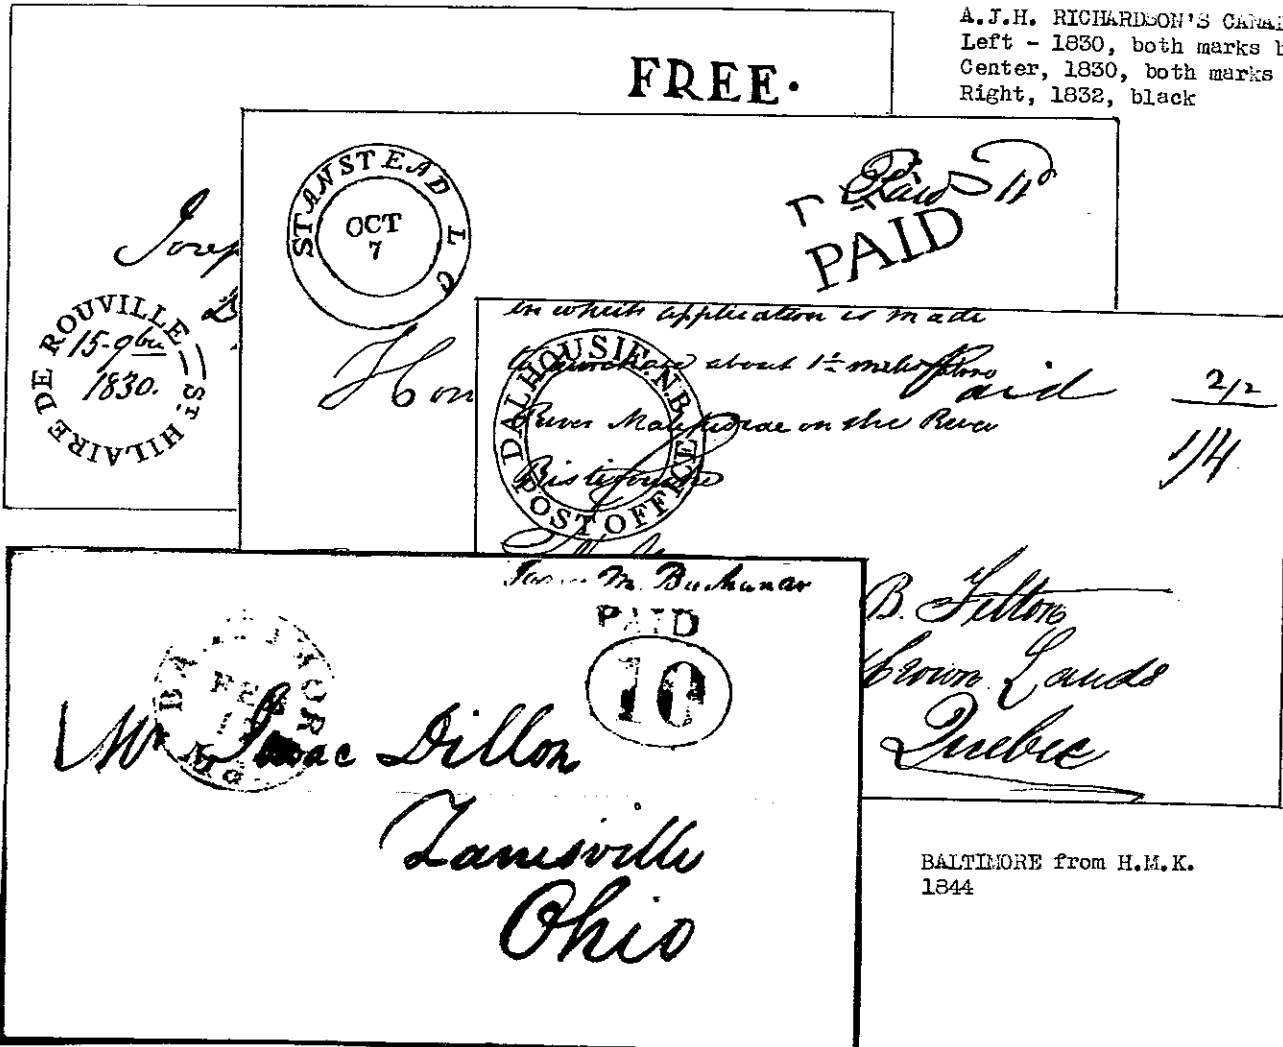 A.J.H. RICHARDSON'S
Left - 1830, both marks
Center, 1830, both marks
Right, 1832, black
FREE.
ROUVILLE DE ST HILAIRE
15-9bre
1830.
STANSTEAD L C
OCT
7
Paid
PAID
Hon
in which application is made
to purchase about 1½ miles
River on the River
DALHOUSIE. N.B.
POST OFFICE
Paid 2/2
1/4
B. Felton
Crown Lands
Quebec
M. Buchanan
PAID
10
BALTIMORE
FEB
Mr Isaac Dillon
Zanesville
Ohio
BALTIMORE from H.M.K.
1844